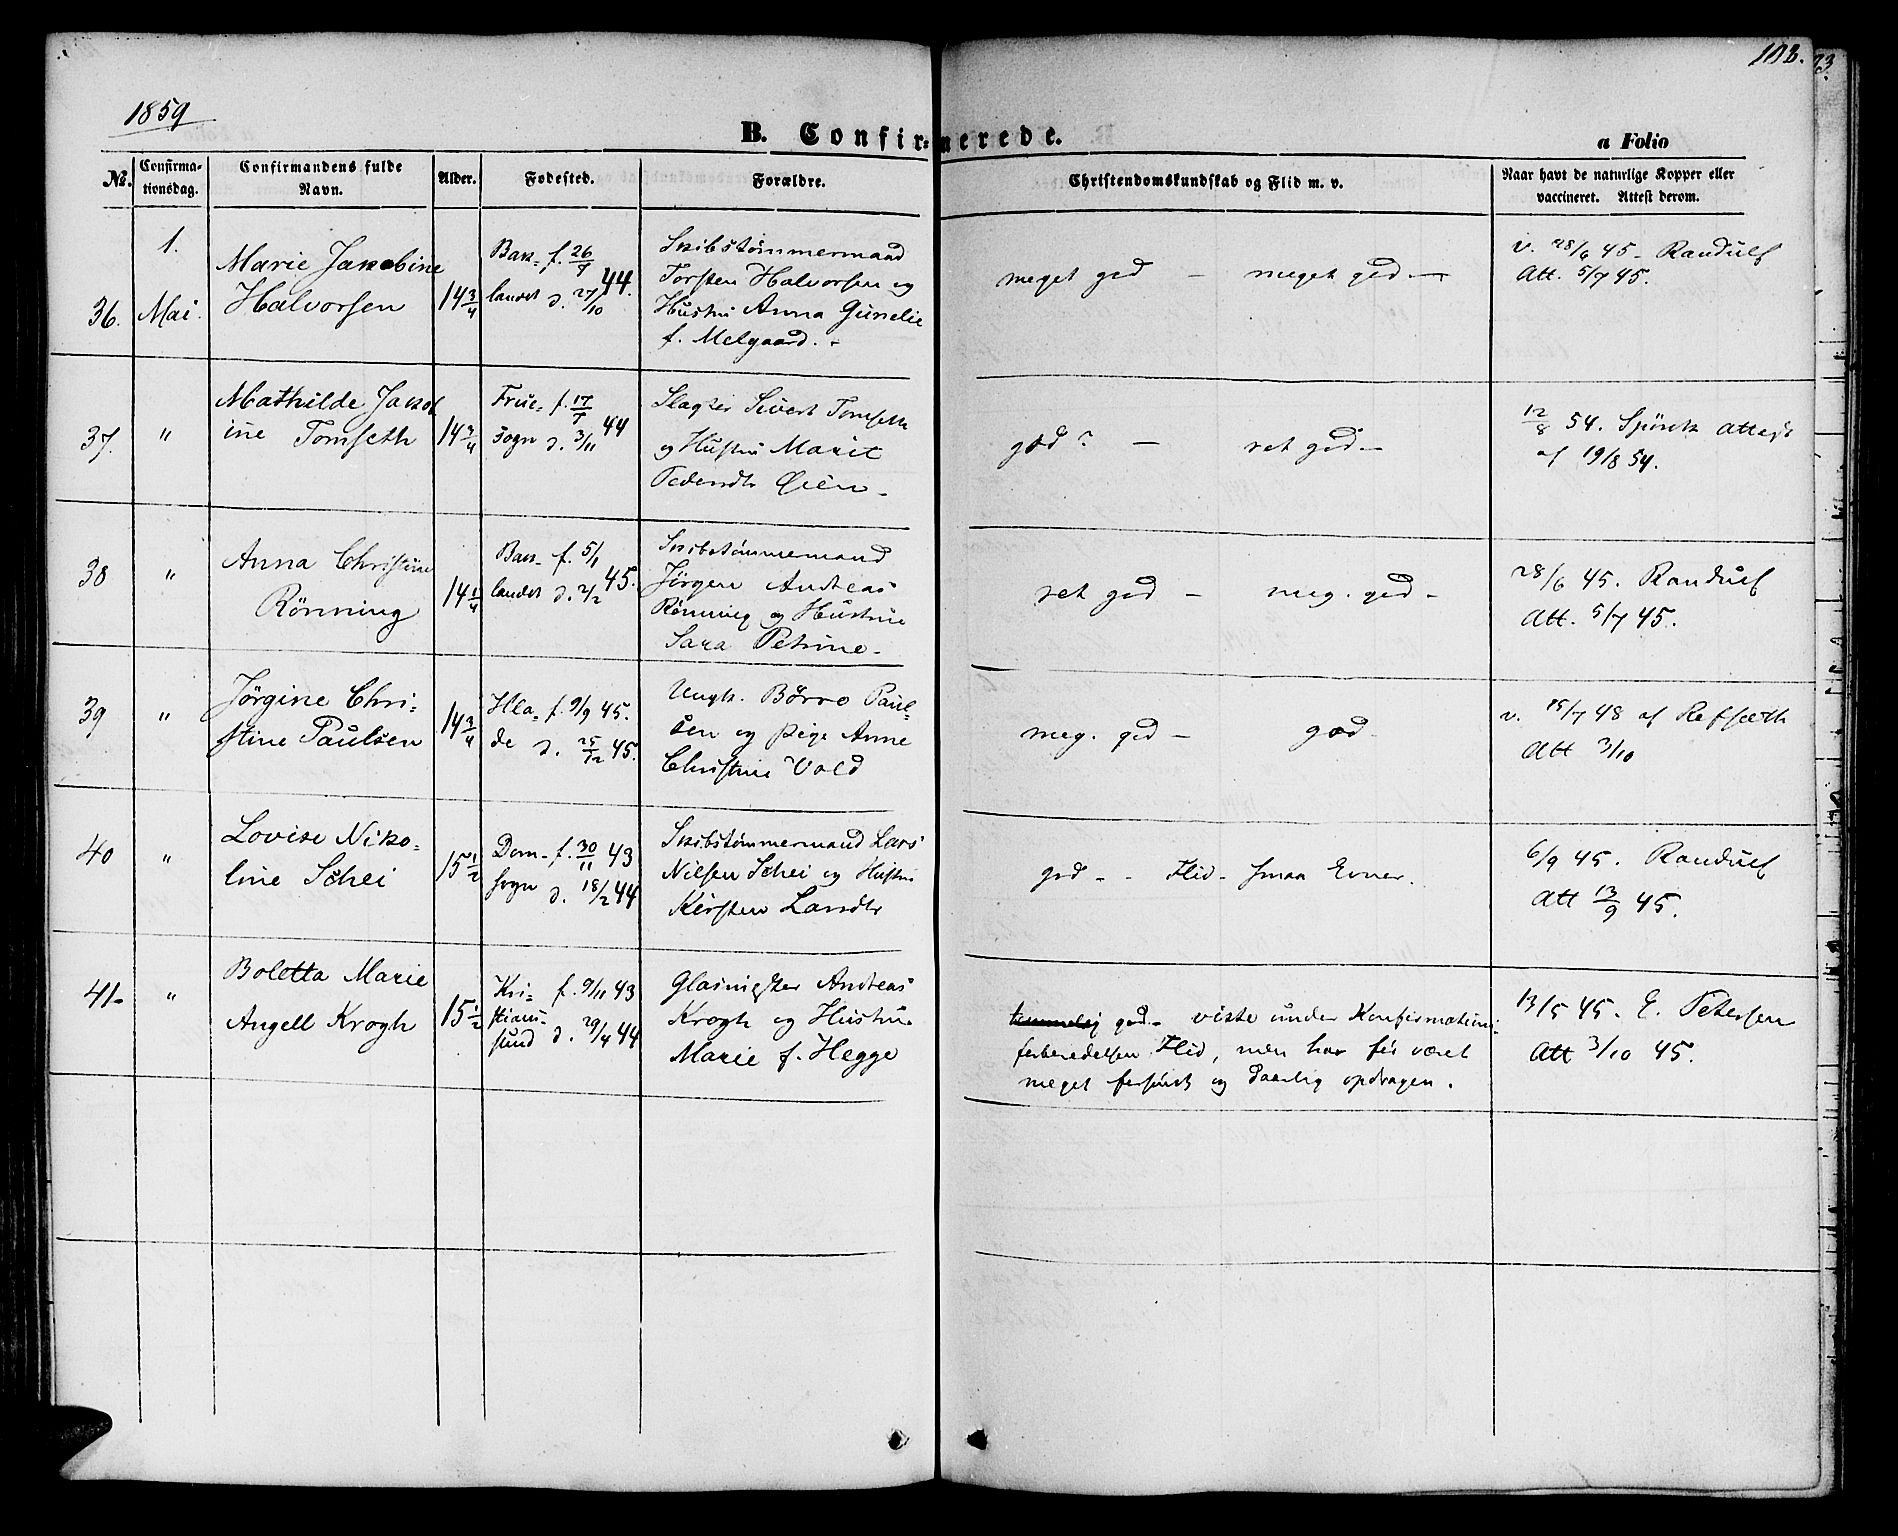 103.
1859
B. Confirmerede.
a Folio
No. Confirmationsdag. Confirmandens fulde Navn. Alder. Fødested. Forældre. Christendomskundskab og Flid m. v. Naar havt de naturlige Kopper eller vaccineret. Attest derom.
36. 1. Mai.
Marie Jakobine
Halvorsen
14 3/4
Bak= f. 26/7
landet d. 27/10 44.
Skibstømmermand
Torsten Halvorsen og
Hustru Anna Gunelie
f. Melgaard. -
meget god - meget god -
v. 28/6 45 - Randulf
Att. 5/7 45.
37. "
Mathilde Jakob
ine Tomseth
14 3/4
Frue= f. 17/7
sogn d. 3/11 44
Slagter Sivert Tomseth
og Hustru Marit
Øien -
god? - ret god -
12/8 54. Spörck attest
af 19/8 54.
38 "
Anna Christine
Rönning
14 1/4
Bak- f. 5/1
landet d. 2/2 45.
Skibstømmermand
Jörgen Andreas
Rönning og Hustrue
Sara Petrine -
ret god - meg. god -
28/6 45. Randulf
Att. 5/7 45.
39 "
Jørgine Chri=
stine Paulsen
14 3/4
Hla= f. 9/9 45.
de d. 25/12 45.
Ungk. Børre Paul=
sen og Pige Anne
Christine Vold
meg. god - god -
v. 15/7 48 af Refsæth
Att 3/10
40 "
Lovise Niko=
line Schei
15 1/2
Dom- f. 30/11 43
sogn d. 18/2 44
Skibstømmermand Lars
Nilsen Schei og Hustru
Kirsten Larsdtr
god - - Flid - smaa Evner.
6/9 45. Randulf
Att 13/9 45.
41- "
Boletta Marie
Angell Krogh
15 1/2
Kri= f. 9/11 43
stians=
sund d. 29/4 44
Glasmester Andreas
Krogh og Hustru
Marie f. Hegge
temmelig god - viste under Konfirmations-
forberedelsen Flid, men har før været
meget forsömt og daarlig opdragen.
13/5 45. E. Petersen
Att 3/10 45.